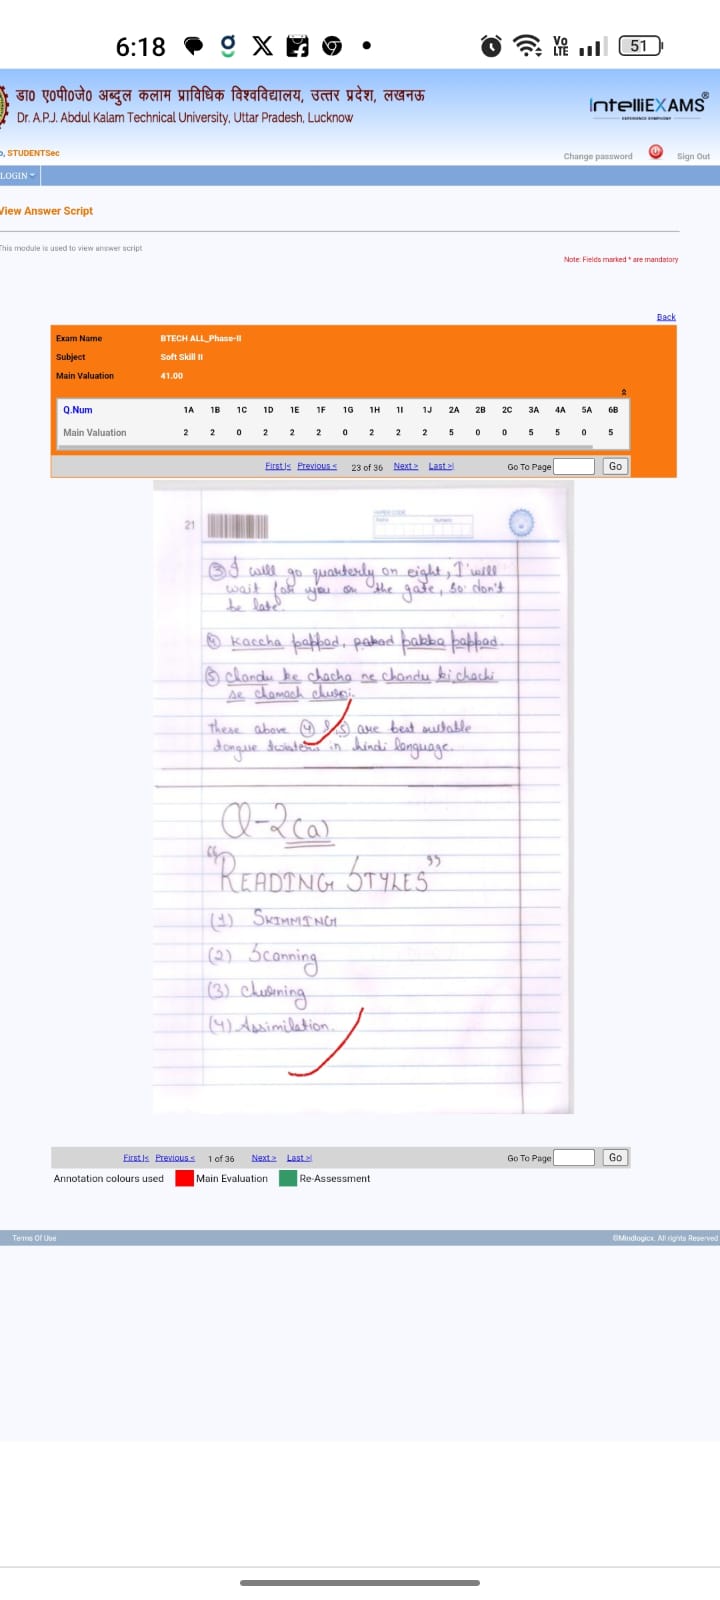 6:18
Vo
LTE
51
डा0 ए0पी0जे0 अब्दुल कलाम प्राविधिक विश्वविद्यालय, उत्तर प्रदेश, लखनऊ
Dr. A.P.J. Abdul Kalam Technical University, Uttar Pradesh, Lucknow
IntelliEXAMS®
o, STUDENTSec
Change password
Sign Out
LOGIN
View Answer Script
This module is used to view answer script
Note: Fields marked * are mandatory
Back
Exam Name BTECH ALL_Phase-II
Subject Soft Skill II
Main Valuation 41.00
Q.Num 1A 1B 1C 1D 1E 1F 1G 1H 1I 1J 2A 2B 2C 3A 4A 5A 6B
Main Valuation 2 2 0 2 2 2 0 2 2 2 5 0 0 5 5 0 5
First|< Previous < 23 of 36 Next > Last >| Go To Page Go
21
③ I will go quarterly on eight, I'will
wait for you on the gate, so don't
be late.
④ Kaccha pappad, pakka pappad.
⑤ chandu ke chacha ne chandu ki chachi
se chamach
These above ④ & ⑤ are best suitable
tongue twisters in hindi language.
Q-2(a)
"READING STYLES"
(1) SKIMMING
(2) Scanning
(3) Churning
(4) Assimilation.
First|< Previous < 1 of 36 Next > Last >| Go To Page Go
Annotation colours used Main Evaluation Re-Assessment
Terms Of Use
©Mindlogicx. All rights Reserved